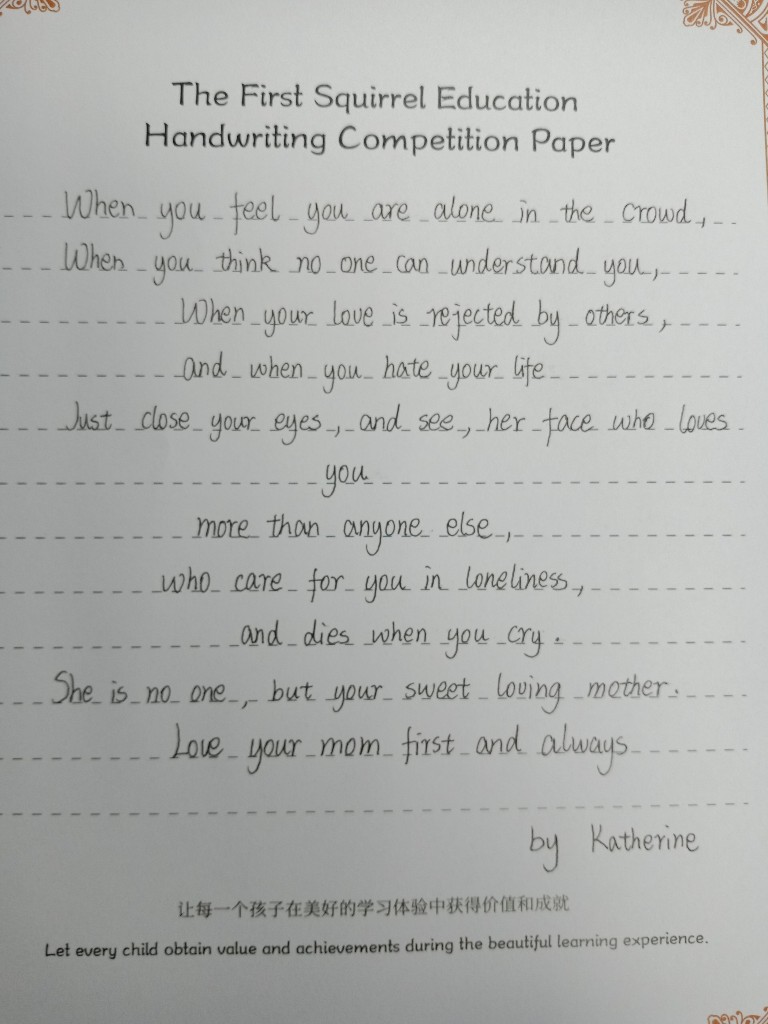 The First Squirrel Education
Handwriting Competition Paper
When you feel you are alone in the crowd,
When you think no one can understand you,
When your love is rejected by others,
and when you hate your life
Just close your eyes, and see, her face who loves
you
more than anyone else,
who care for you in loneliness,
and dies when you cry.
She is no one, but your sweet loving mother.
Love your mom first and always
by Katherine
让每一个孩子在美好的学习体验中获得价值和成就
Let every child obtain value and achievements during the beautiful learning experience.